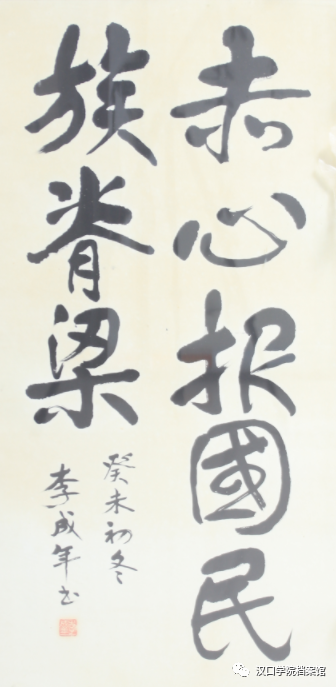 赤心报國民
族脊梁
癸未初冬
李成年书
汉口学院档案馆